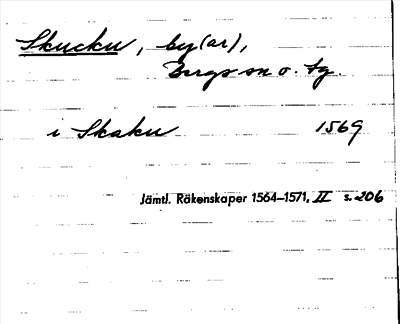 Skucku, by(ar),
Bergs sn o. tg.
i Skaku 1569
Jämtl. Räkenskaper 1564–1571, II s. 206